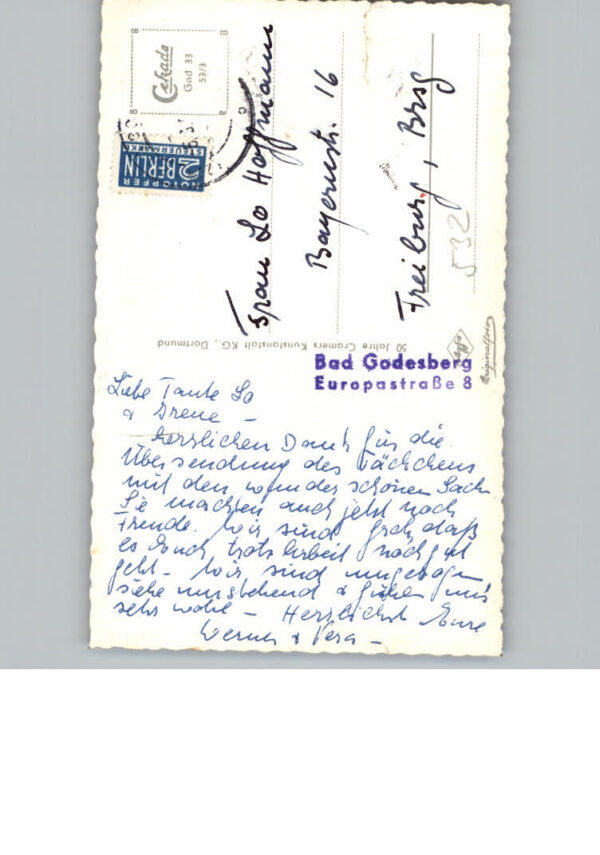 Cekade
God 33
53/3
NOTOPFER
2 BERLIN
STEUERMARKE
Frau Lo Hoffmann
Bayernstr. 16
Freiburg, Brsg
532
50 Jahre Cramers Kunstanstalt KG., Dortmund
Originalfoto
Bad Godesberg
Europastraße 8
Liebe Tante Lo
& Irene –
Herzlichen Dank für die
Übersendung des Päckchens
mit den wunderschönen Sachen
Sie machen auch jetzt noch
Freude. Wir sind froh, daß
es Euch trotz Arbeit noch gut
geht – Wir sind umgezogen
siehe umstehend & fühlen uns
sehr wohl – Herzlichst Eure
Werner & Vera –